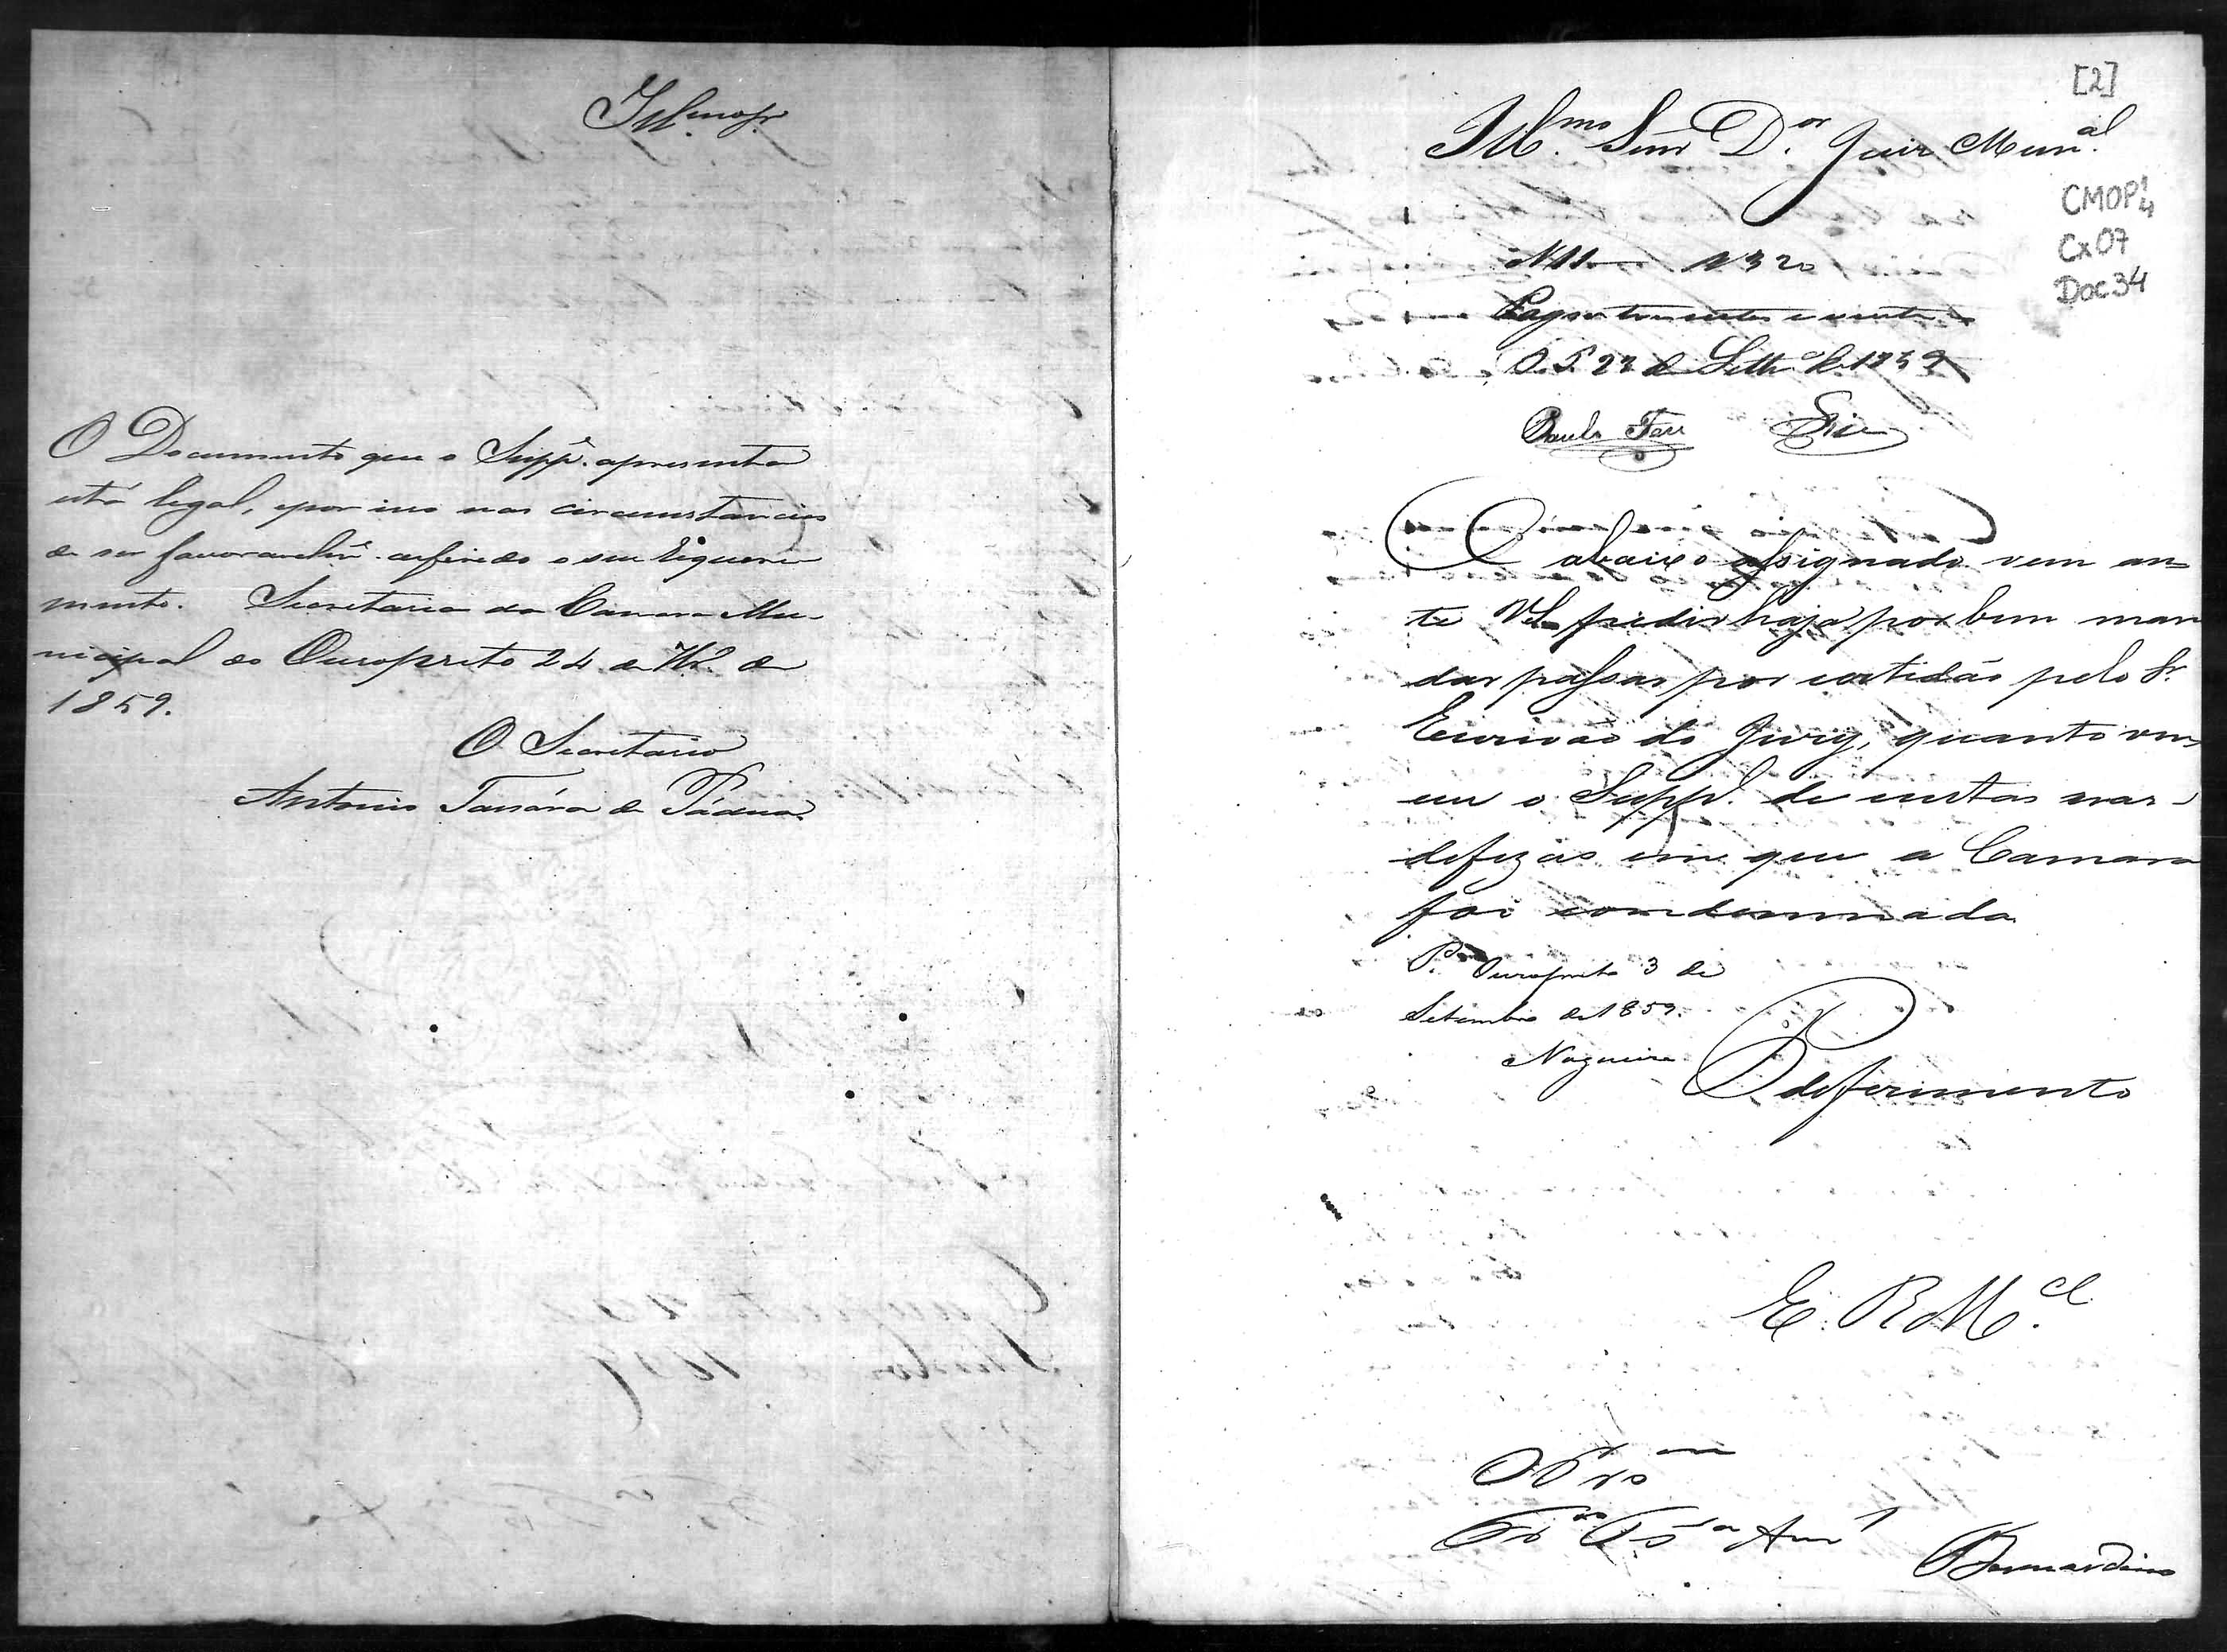 Illmos Snr
O Documento que o Suppe. apresenta
está legal, e por isso nas circunstancias
de ser favoravelme. deferido o seu Requeri
mento. Secretaria da Camara Mu-
nicipal do Ouropreto 24 de 7bro. de
1859.
O Secretario
Antonio Tassára de Pádua.
[2]
Illmo. Senr Dor. Juiz Munal.
CMOP 1/4
Cx 07
Doc 34
N 11 1$320
Pagou trescentos e vinte rs
O. P. 27 de Settro de 1859
Paula Farr
O abaixo assignado vem an-
te VSa pedir haja por bem man
dar passar por certidão pelo Sr.
Escrivão do Jury, quanto ven
ceu o Suppe. de custas nas
defezas em que a Camara
foi condemnada
P. Ouropreto 3 de
Setembro de 1859.
Nogueira
P deferimento
E. R. Mce.
Bernardino